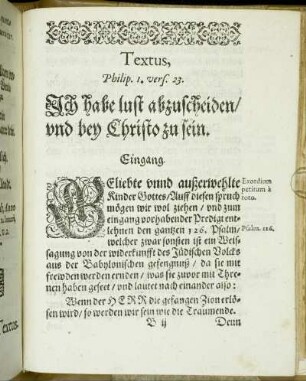 Textus,
Philip. 1. vers. 23.
Ich habe lust abzuscheiden/
vnd bey Christo zu sein.
Eingang.
GEliebte vnnd außerwehlte
Kinder Gottes/ Auff diesen spruch
mögen wir wol ziehen/ vnd zum
eingang vorhabender Predigt ent-
lehnen den gantzen 126. Psalm/
welcher zwar sonsten ist ein Weis-
sagung von der widerkunfft des Jüdischen Volcks
aus der Babylonischen gefengnuß/ da sie mit
frewden werden ernden/ was sie zuvor mit Thre-
nen haben geseet/ vnd lautet nach einander also:
Wenn der HERR die gefangen Zion erlö-
sen wird/ so werden wir sein wie die Träumende.
B ij
Denn
Exordium
petitum à
toto.
Psalm. 126.
Textus.